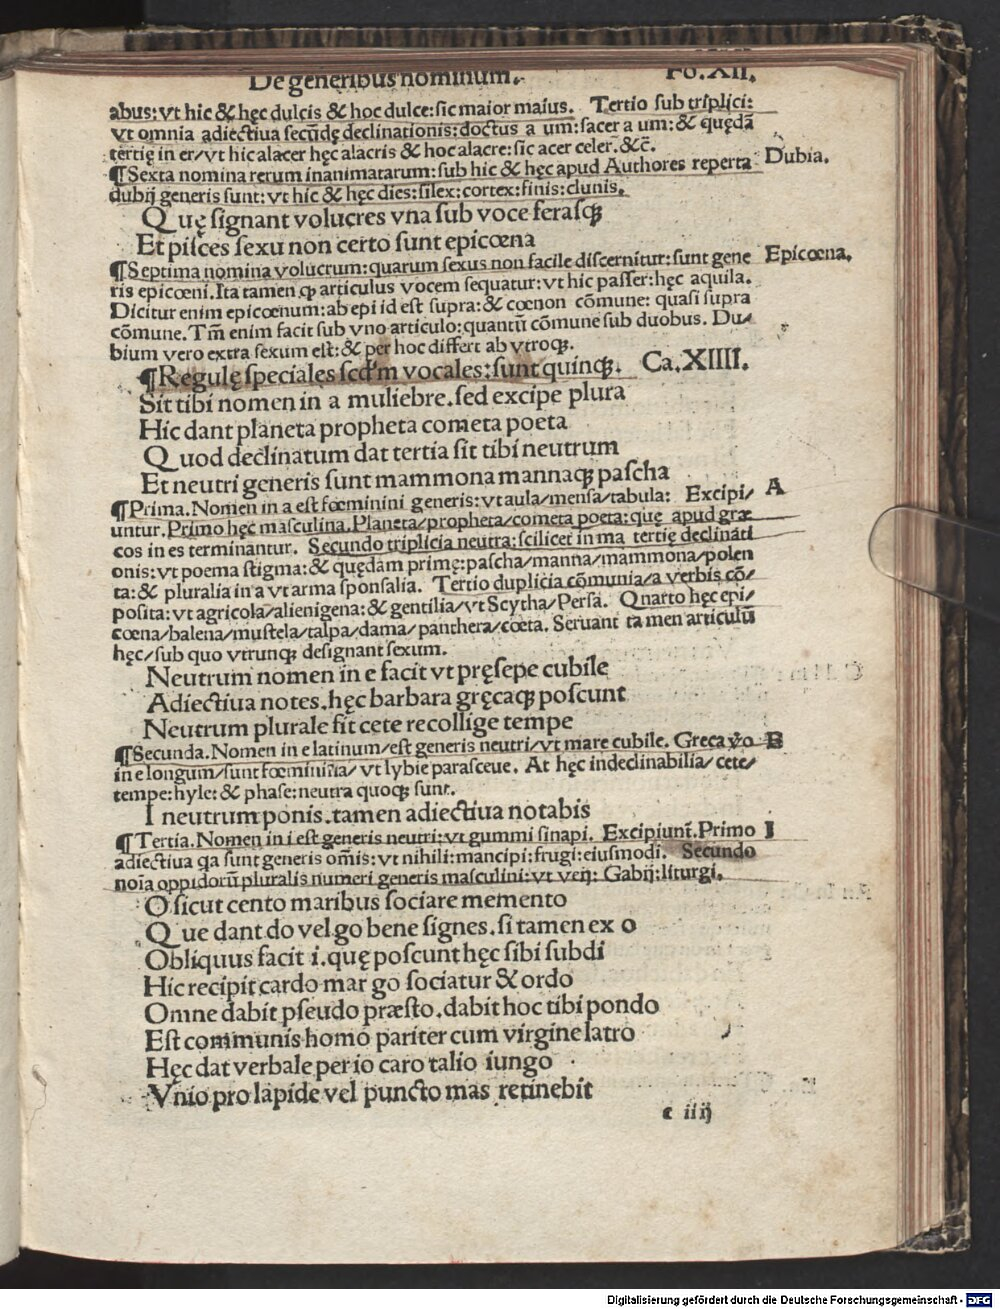 De generibus nominum. Fo.XII.
abus: vt hic & hęc dulcis & hoc dulce: sic maior maius. Tertio sub triplici:
vt omnia adiectiua secūdę declinationis: doctus a um: sacer a um: & quędā
tertię in er/ vt hic alacer hęc alacris & hoc alacre: sic acer celer. &c̄.
¶Sexta nomina rerum inanimatarum: sub hic & hęc apud Authores reperta Dubia.
dubij generis sunt: vt hic & hęc dies: silex: cortex: finis: clunis.
Quę signant volucres vna sub voce ferasqꝫ
Et pisces sexu non certo sunt epicœna
¶Septima nomina volucrum: quarum sexus non facile discernitur: sunt gene Epicœna.
ris epicœni. Ita tamen ꝙ articulus vocem sequatur: vt hic passer: hęc aquila.
Dicitur enim epicœnum: ab epi id est supra: & cœnon cōmune: quasi supra
cōmune. Tm̄ enim facit sub vno articulo: quantū cōmune sub duobus. Du/
bium vero extra sexum est: & per hoc differt ab vtroqꝫ.
¶Regulę speciales scd'm vocales: sunt quinqꝫ. Ca.XIIII.
Sit tibi nomen in a muliebre. sed excipe plura
Hic dant planeta propheta cometa poeta
Quod declinatum dat tertia sit tibi neutrum
Et neutri generis sunt mammona mannaqꝫ pascha
¶Prima. Nomen in a est fœminini generis: vt aula/ mensa/ tabula: Excipi/ A
untur. Primo hęc masculina. Planeta/ propheta/ cometa poeta: quę apud græ
cos in es terminantur. Secundo triplicia neutra: scilicet in ma tertię declinati
onis: vt poema stigma: & quędam primę: pascha/ manna/ mammona/ polen
ta: & pluralia in a vt arma sponsalia. Tertio duplicia cōmunia/ a verbis cō/
posita: vt agricola/ alienigena: & gentilia/ vt Scytha/ Persa. Quarto hęc epi/
cœna/ balena/ mustela/ talpa/ dama/ panthera/ cœta. Seruant tamen articulū
hęc/ sub quo vtrunqꝫ designant sexum.
Neutrum nomen in e facit vt pręsepe cubile
Adiectiua notes. hęc barbara gręcaqꝫ poscunt
Neutrum plurale fit cete recollige tempe
¶Secunda. Nomen in e latinum/ est generis neutri/ vt mare cubile. Greca v̊o B
in e longum/ sunt fœminina/ vt lybie parasceue. At hęc indeclinabilia/ cete/
tempe: hyle: & phase: neutra quoqꝫ sunt.
I neutrum ponis. tamen adiectiua notabis
¶Tertia. Nomen in i est generis neutri: vt gummi sinapi. Excipiunt̃. Primo I
adiectiua q̄a sunt generis om̄is: vt nihili: mancipi: frugi: eiusmodi. Secundo
noīa oppidorū pluralis numeri generis masculini: vt veij: Gabij: liturgi.
O sicut cento maribus sociare memento
Que dant do vel go bene signes. si tamen ex o
Obliquus facit i. quę poscunt hęc sibi subdi
Hic recipit cardo mar go sociatur & ordo
Omne dabit pseudo præsto. dabit hoc tibi pondo
Est communis homo pariter cum virgine latro
Hęc dat verbale per io caro talio iungo
Vnio pro lapide vel puncto mas retinebit
c iiij
Digitalisierung gefördert durch die Deutsche Forschungsgemeinschaft - DFG